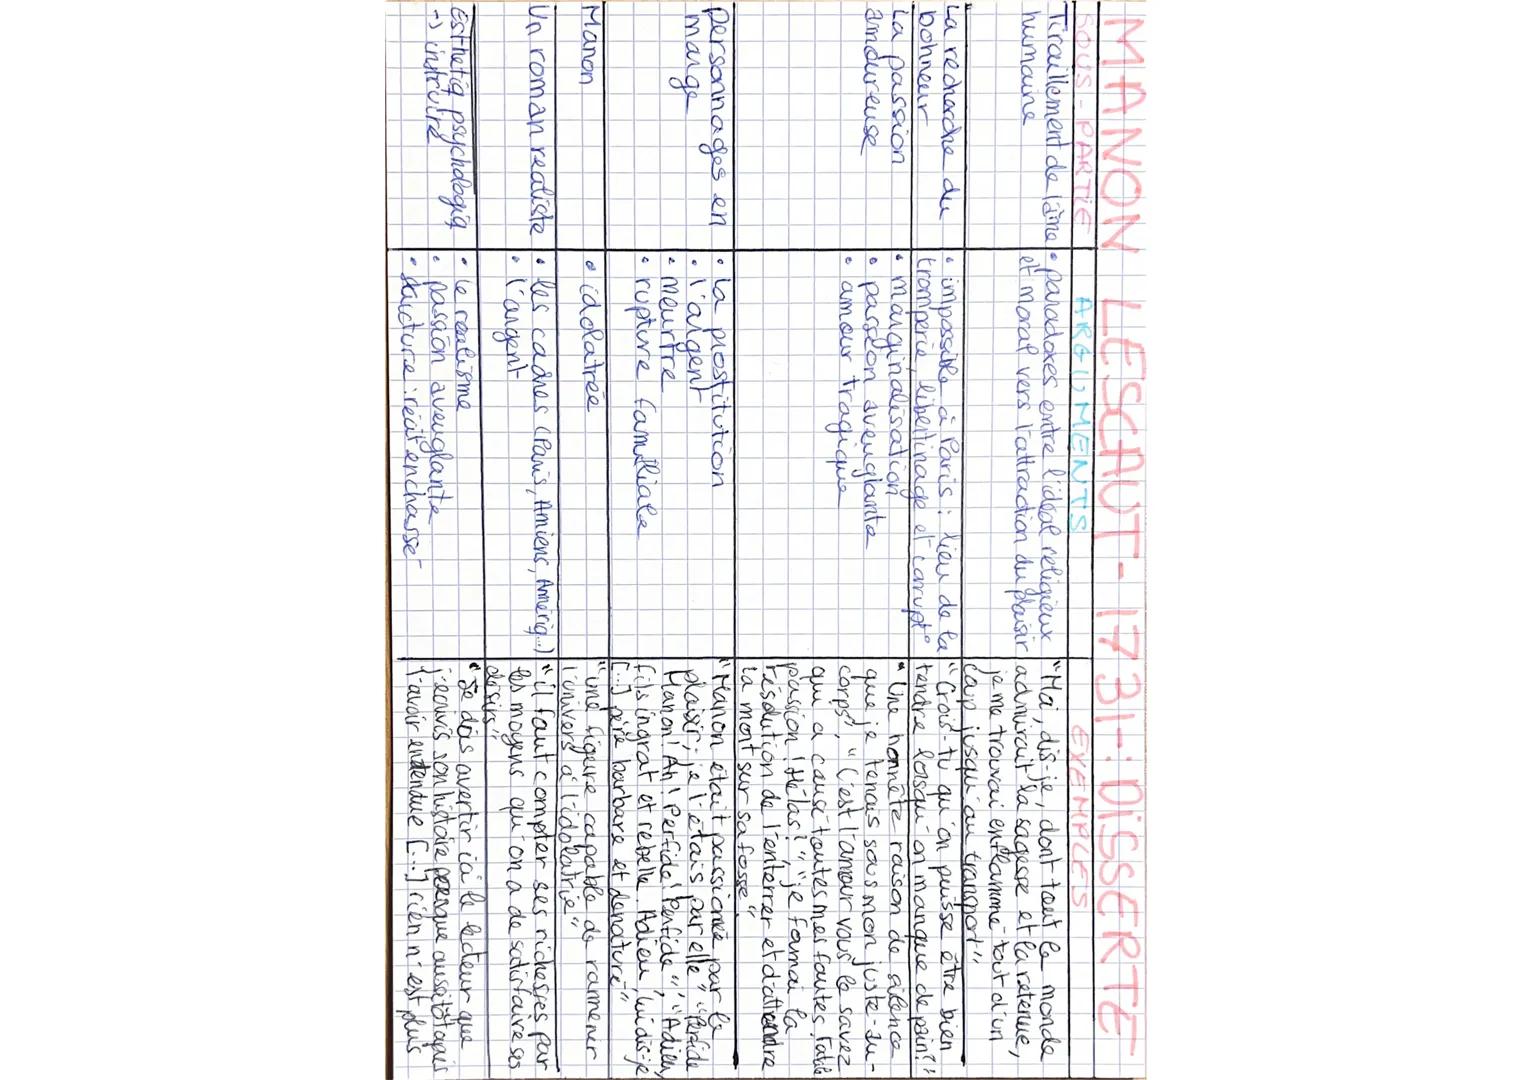 MANON LESCAUT - 1731 - : DISSERTE
SOUS-PARTIE
ARGUMENTS
EXEMPLES
Tiraillement de l'âme
humaine
• paradoxes entre l'idéal religieux
et moral vers l'attraction du plaisir
"Moi, dis-je, dont tout le monde
admirait la sagesse et la retenue,
je me trouvai enflammé tout d'un
coup jusqu'au transport"
La recherche du
bonheur
• impossible à Paris : lieu de la
tromperie, libertinage et corrupt°
"Crois-tu qu'on puisse être bien
tendre lorsqu'on manque de pain?"
La passion
amoureuse
• marginalisation
• passion aveuglante
• amour tragique
"Une honnête raison de silence
que je tenais sous mon juste-au-
corps", "C'est l'amour, vous le savez
qui a causé toutes mes fautes. Fatale
passion ! Hélas !", "je formai la
résolution de l'enterrer et d'attendre
la mort sur sa fosse"
personnages en
marge
• la prostitution
• l'argent
• meurtre
• rupture familiale
"Manon était passionnée par le
plaisir; je l'étais par elle" "Perfide
Manon! Ah! Perfide! Perfide", "Adieu,
fils ingrat et rebelle. Adieu, lui dis-je
[...] père barbare et dénaturé"
Manon
• idolatrée
"une figure capable de ramener
l'univers à l'idolatrie"
Un roman realiste
• les cadres (Paris, Amiens, Amériq..)
• l'argent
"il faut compter ses richesses par
les moyens qu'on a de satisfaire ses
désirs"
Esthetiq psychologiq
-> instruire
• le realisme
• passion aveuglante
• structure : récit enchassé
"Je dois avertir ici le lecteur que
j'écrivis son histoire presque aussitôt après
l'avoir entendue [...] rien n'est plus